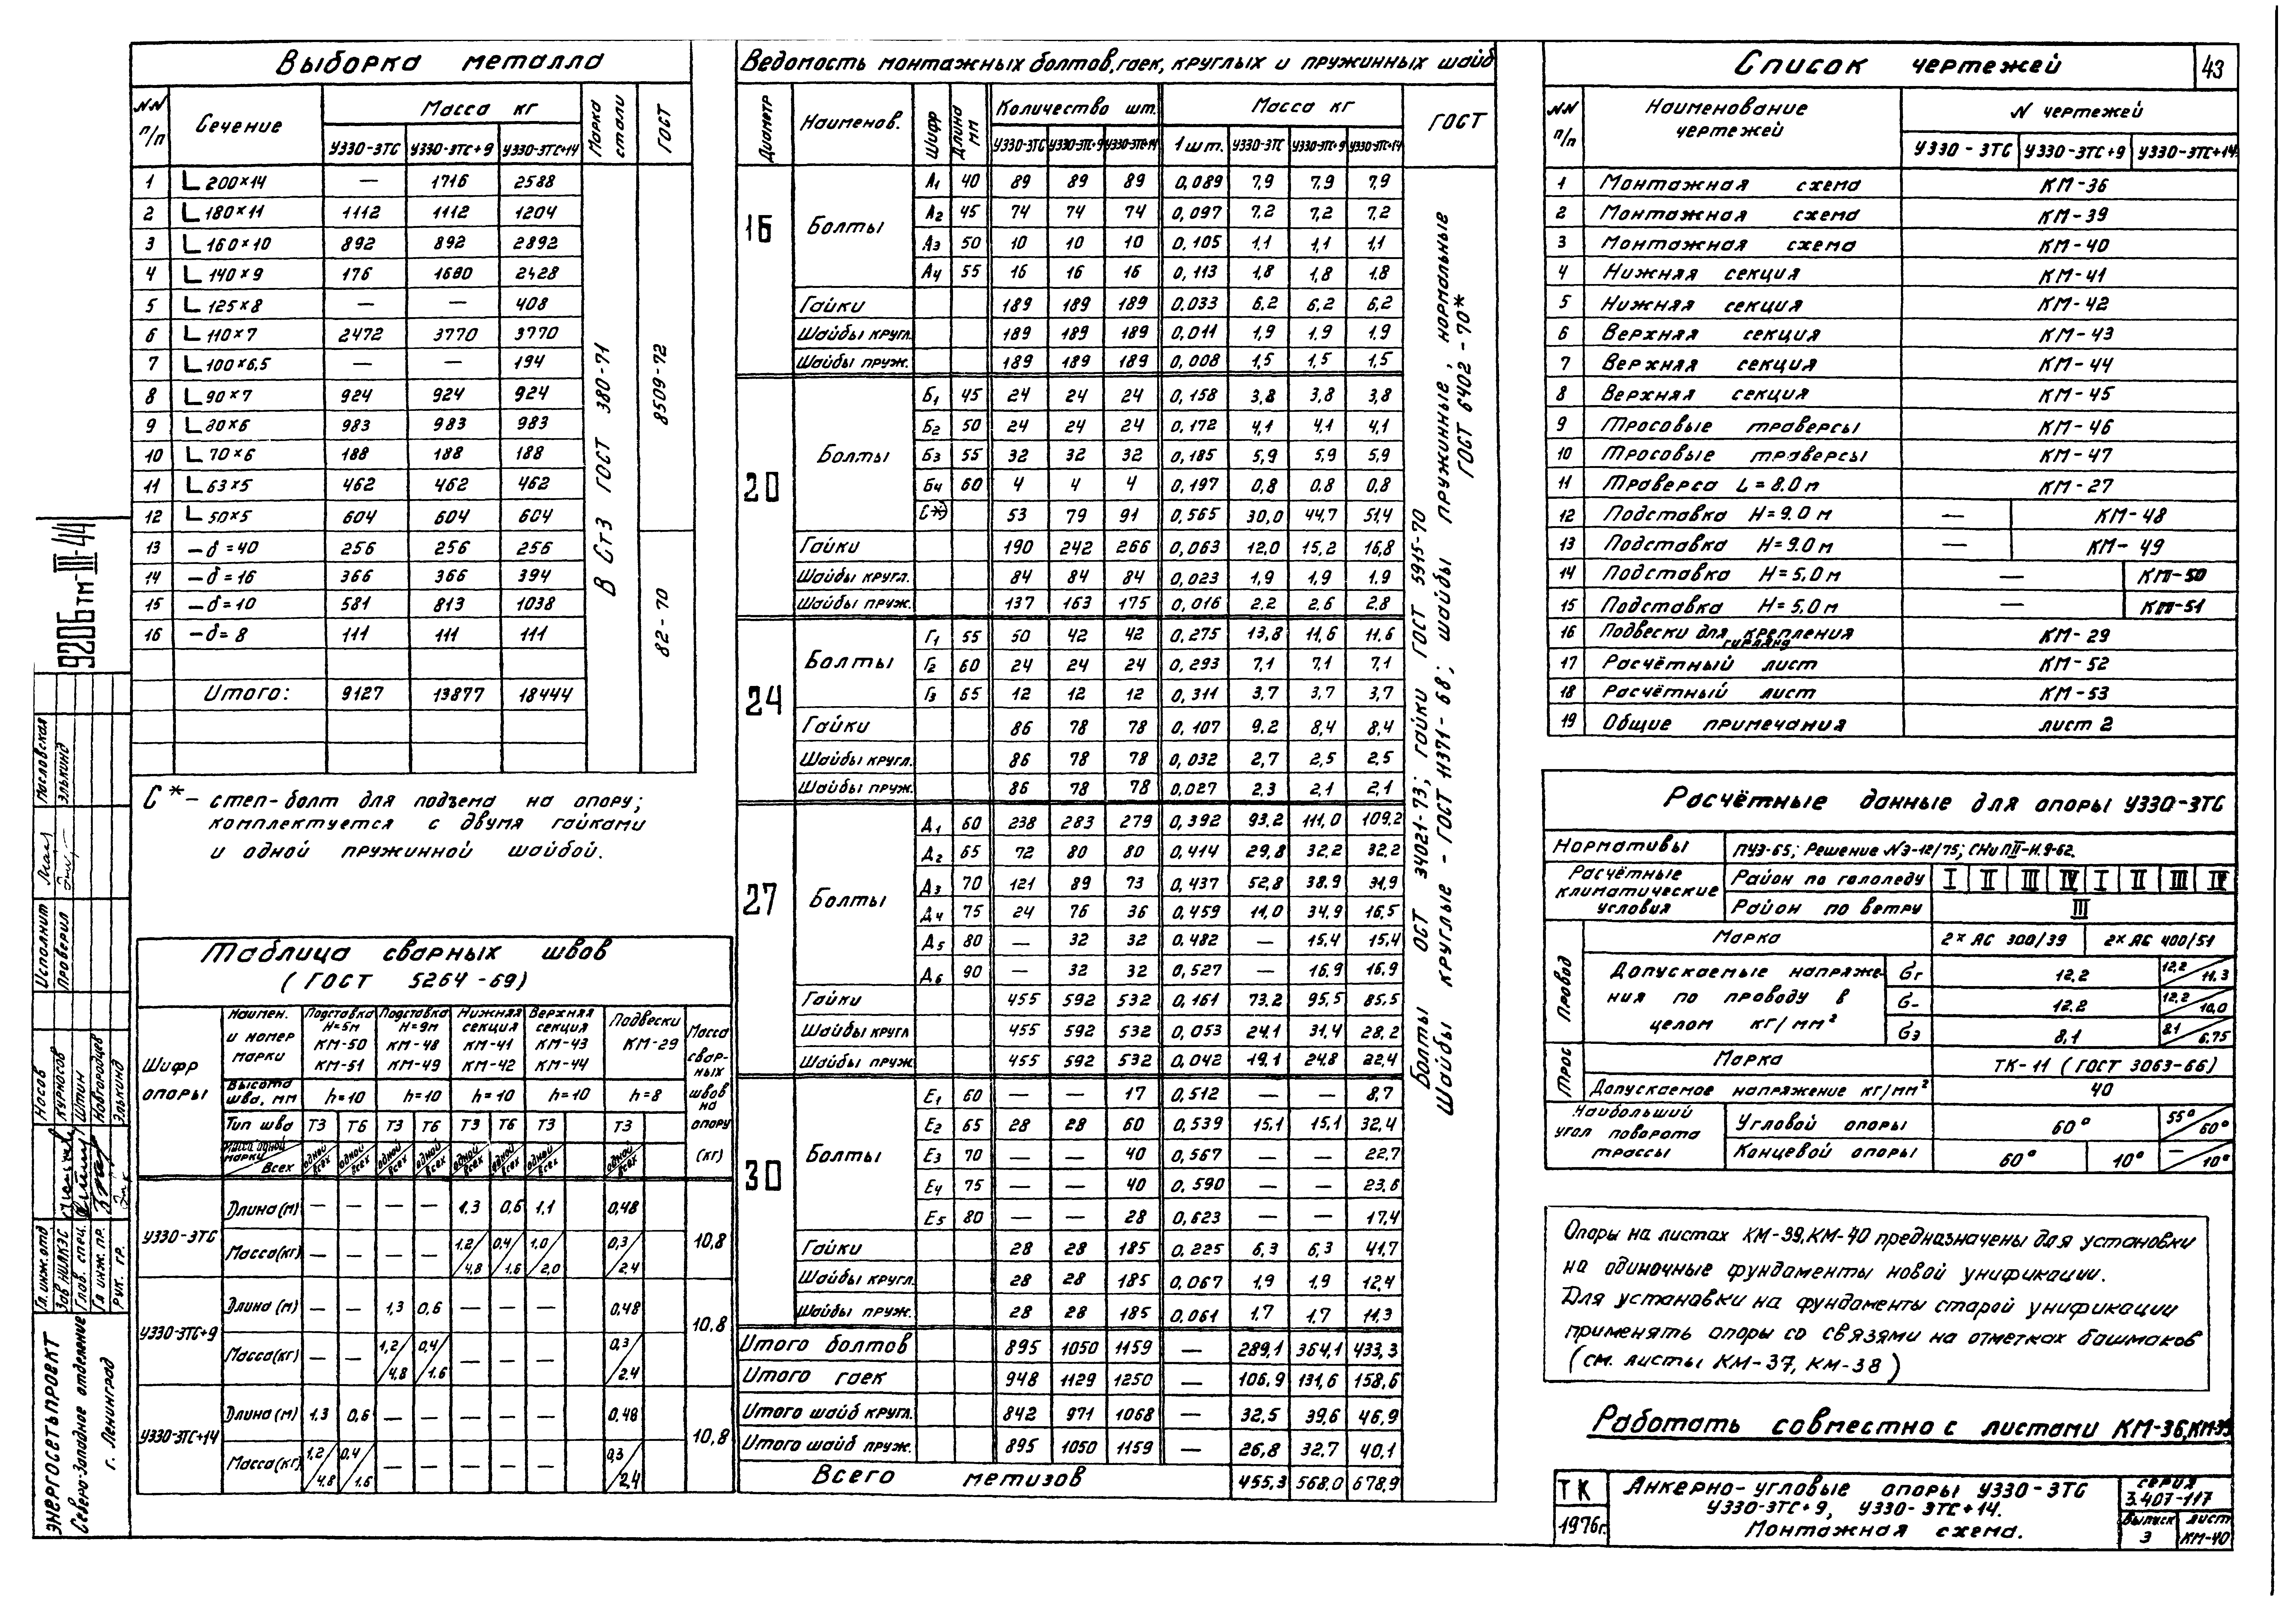 Выборка металла
NN п/п | Сечение | Масса кг | Марка стали | ГОСТ
У330-3ТС | У330-3ТС+9 | У330-3ТС+14
1 | L 200×14 | — | 1716 | 2588
2 | L 180×11 | 1112 | 1112 | 1204
3 | L 160×10 | 892 | 892 | 2892
4 | L 140×9 | 176 | 1680 | 2428
5 | L 125×8 | — | — | 408
6 | L 110×7 | 2472 | 3770 | 3770
7 | L 100×6,5 | — | — | 194
8 | L 90×7 | 924 | 924 | 924
9 | L 80×6 | 983 | 983 | 983
10 | L 70×6 | 188 | 188 | 188
11 | L 63×5 | 462 | 462 | 462
12 | L 50×5 | 604 | 604 | 604
13 | — δ = 40 | 256 | 256 | 256
14 | — δ = 16 | 366 | 366 | 394
15 | — δ = 10 | 581 | 813 | 1038
16 | — δ = 8 | 111 | 111 | 111
Итого: | 9127 | 13877 | 18444
В Ст3 ГОСТ 380-71
8509-72
82-70
С* – степ-болт для подъема на опору;
комплектуется с двумя гайками
и одной пружинной шайбой.
Таблица сварных швов
(ГОСТ 5264-69)
Шифр опоры | Наимен. и номер марки | Подставка H=5м КМ-50 КМ-51 | Подставка H=9м КМ-48 КМ-49 | Нижняя секция КМ-41 КМ-42 | Верхняя секция КМ-43 КМ-44 | Подвески КМ-29 | Масса сварных швов на опору (кг)
Высота шва, мм | h=10 | h=10 | h=10 | h=10 | h=8
Тип шва | Т3 | Т6 | Т3 | Т6 | Т3 | Т6 | Т3 | Т3
Масса одной марки / Всех | одной/всех | одной/всех | одной/всех | одной/всех | одной/всех | одной/всех | одной/всех | одной/всех
У330-3ТС | Длина (м) | — | — | — | — | 1,3 | 0,6 | 1,1 | 0,48 | 10,8
Масса (кг) | — | — | — | — | 1,2/4,8 | 0,4/1.6 | 1,0/2,0 | 0,3/2,4
У330-3ТС+9 | Длина (м) | — | — | 1,3 | 0,6 | — | — | — | 0,48 | 10,8
Масса (кг) | — | — | 1,2/4,8 | 0,4/1.6 | — | — | — | 0,3/2,4
У330-3ТС+14 | Длина (м) | 1,3 | 0,6 | — | — | — | — | — | 0,48 | 10,8
Масса (кг) | 1,2/4,8 | 0,4/1.6 | — | — | — | — | — | 0,3/2,4
Ведомость монтажных болтов, гаек, круглых и пружинных шайб
Диаметр | Наименов. | Шифр | Длина мм | Количество шт. | Масса кг | ГОСТ
У330-3ТС | У330-3ТС+9 | У330-3ТС+14 | 1 шт. | У330-3ТС | У330-3ТС+9 | У330-3ТС+14
16 | Болты | А1 | 40 | 89 | 89 | 89 | 0,089 | 7,9 | 7,9 | 7,9
А2 | 45 | 74 | 74 | 74 | 0,097 | 7,2 | 7,2 | 7,2
А3 | 50 | 10 | 10 | 10 | 0,105 | 1,1 | 1,1 | 1,1
А4 | 55 | 16 | 16 | 16 | 0,113 | 1,8 | 1,8 | 1,8
Гайки | 189 | 189 | 189 | 0.033 | 6,2 | 6,2 | 6,2
Шайбы кругл. | 189 | 189 | 189 | 0,011 | 1,9 | 1,9 | 1,9
Шайбы пруж. | 189 | 189 | 189 | 0,008 | 1,5 | 1,5 | 1,5
20 | Болты | Б1 | 45 | 24 | 24 | 24 | 0,158 | 3,8 | 3,8 | 3,8
Б2 | 50 | 24 | 24 | 24 | 0,172 | 4,1 | 4,1 | 4,1
Б3 | 55 | 32 | 32 | 32 | 0,185 | 5,9 | 5,9 | 5,9
Б4 | 60 | 4 | 4 | 4 | 0,197 | 0,8 | 0,8 | 0,8
С*) | 53 | 79 | 91 | 0,565 | 30,0 | 44,7 | 51,4
Гайки | 190 | 242 | 266 | 0,063 | 12,0 | 15,2 | 16,8
Шайбы кругл. | 84 | 84 | 84 | 0,023 | 1,9 | 1,9 | 1.9
Шайбы пруж. | 137 | 163 | 175 | 0,016 | 2.2 | 2,6 | 2,8
24 | Болты | Г1 | 55 | 50 | 42 | 42 | 0,275 | 13,8 | 11,6 | 11,6
Г2 | 60 | 24 | 24 | 24 | 0,293 | 7,1 | 7,1 | 7,1
Г3 | 65 | 12 | 12 | 12 | 0,311 | 3,7 | 3,7 | 3,7
Гайки | 86 | 78 | 78 | 0,107 | 9.2 | 8,4 | 8,4
Шайбы кругл. | 86 | 78 | 78 | 0,032 | 2,7 | 2,5 | 2,5
Шайбы пруж. | 86 | 78 | 78 | 0,027 | 2,3 | 2,1 | 2,1
27 | Болты | Д1 | 60 | 238 | 283 | 279 | 0,392 | 93,2 | 111,0 | 109,2
Д2 | 65 | 72 | 80 | 80 | 0,414 | 29,8 | 32,2 | 32,2
Д3 | 70 | 121 | 89 | 73 | 0,437 | 52,8 | 38.9 | 31,9
Д4 | 75 | 24 | 76 | 36 | 0,459 | 11,0 | 34,9 | 16,5
Д5 | 80 | — | 32 | 32 | 0.482 | — | 15,4 | 15,4
Д6 | 90 | — | 32 | 32 | 0,527 | — | 16,9 | 16,9
Гайки | 455 | 592 | 532 | 0,161 | 73,2 | 95,5 | 85,5
Шайбы кругл | 455 | 592 | 532 | 0,053 | 24,1 | 31,4 | 28,2
Шайбы пруж. | 455 | 592 | 532 | 0,042 | 19,1 | 24,8 | 22,4
30 | Болты | Е1 | 60 | — | — | 17 | 0,512 | — | — | 8,7
Е2 | 65 | 28 | 28 | 60 | 0,539 | 15,1 | 15,1 | 32,4
Е3 | 70 | — | — | 40 | 0,567 | — | — | 22,7
Е4 | 75 | — | — | 40 | 0.590 | — | — | 23,6
Е5 | 80 | — | — | 28 | 0,623 | — | — | 17,4
Гайки | 28 | 28 | 185 | 0.225 | 6,3 | 6,3 | 41,7
Шайбы кругл. | 28 | 28 | 185 | 0,067 | 1,9 | 1,9 | 12,4
Шайбы пруж. | 28 | 28 | 185 | 0,061 | 1,7 | 1,7 | 11,3
Итого болтов | 895 | 1050 | 1159 | — | 289,1 | 364,1 | 433,3
Итого гаек | 948 | 1129 | 1250 | — | 106,9 | 131,6 | 158,6
Итого шайб кругл. | 842 | 971 | 1068 | — | 32,5 | 39,6 | 46,9
Итого шайб пруж. | 895 | 1050 | 1159 | — | 26,8 | 32.7 | 40,1
Всего метизов | 455,3 | 568,0 | 678,9
Болты ОСТ 34021-73; гайки ГОСТ 5915-70
Шайбы круглые - ГОСТ 11371-68; шайбы пружинные, нормальные
ГОСТ 6402-70*
Список чертежей
43
NN п/п | Наименование чертежей | N чертежей
У330-3ТС | У330-3ТС+9 | У330-3ТС+14
1 | Монтажная схема | КМ-36
2 | Монтажная схема | КМ-39
3 | Монтажная схема | КМ-40
4 | Нижняя секция | КМ-41
5 | Нижняя секция | КМ-42
6 | Верхняя секция | КМ-43
7 | Верхняя секция | КМ-44
8 | Верхняя секция | КМ-45
9 | Тросовые траверсы | КМ-46
10 | Тросовые траверсы | КМ-47
11 | Траверса L = 8.0 м | КМ-27
12 | Подставка H = 9.0 м | — | КМ-48
13 | Подставка H = 9.0 м | — | КМ-49
14 | Подставка H = 5,0 м | — | КМ-50
15 | Подставка H = 5,0 м | — | КМ-51
16 | Подвески для крепления гирлянд | КМ-29
17 | Расчётный лист | КМ-52
18 | Расчётный лист | КМ-53
19 | Общие примечания | лист 2
Расчётные данные для опоры У330-3ТС
Нормативы | ПУЭ-65; Решение №Э-12/75; СНиП II-И.9-62.
Расчётные климатические условия | Район по гололеду | I | II | III | IV | I | II | III | IV
Район по ветру | III
Провод | Марка | 2× АС 300/39 | 2× АС 400/51
Допускаемые напряжения по проводу в целом кг/мм² | σг | 12.2 | 12,2/11,3
σ- | 12.2 | 12,2/10,0
σэ | 8,1 | 8.1/6.75
Трос | Марка | ТК-11 (ГОСТ 3063-66)
Допускаемое напряжение кг/мм² | 40
Наибольший угол поворота трассы | Угловой опоры | 60° | 55°/60°
Концевой опоры | 60° | 10° | —/10°
Опоры на листах КМ-39, КМ-40 предназначены для установки
на одиночные фундаменты новой унификации.
Для установки на фундаменты старой унификации
применять опоры со связями на отметках башмаков
(см. листы КМ-37, КМ-38)
Работать совместно с листами КМ-36, КМ-39
ТК
1976г.
Анкерно-угловые опоры У330-3ТС
У330-3ТС+9, У330-3ТС+14.
Монтажная схема.
серия
3.407-117
выпуск 3
лист КМ-40
9206тм-III-44
Исполнит | Масловская
Проверил | Элькинд
Гл. инж. отд | Носов
Зав НИЛКЭС | Курносов
Глав. спец. | Штин
Гл инж. пр. | Новгородцев
Рук. гр. | Элькинд
ЭНЕРГОСЕТЬПРОЕКТ
Северо-Западное отделение
г. Ленинград